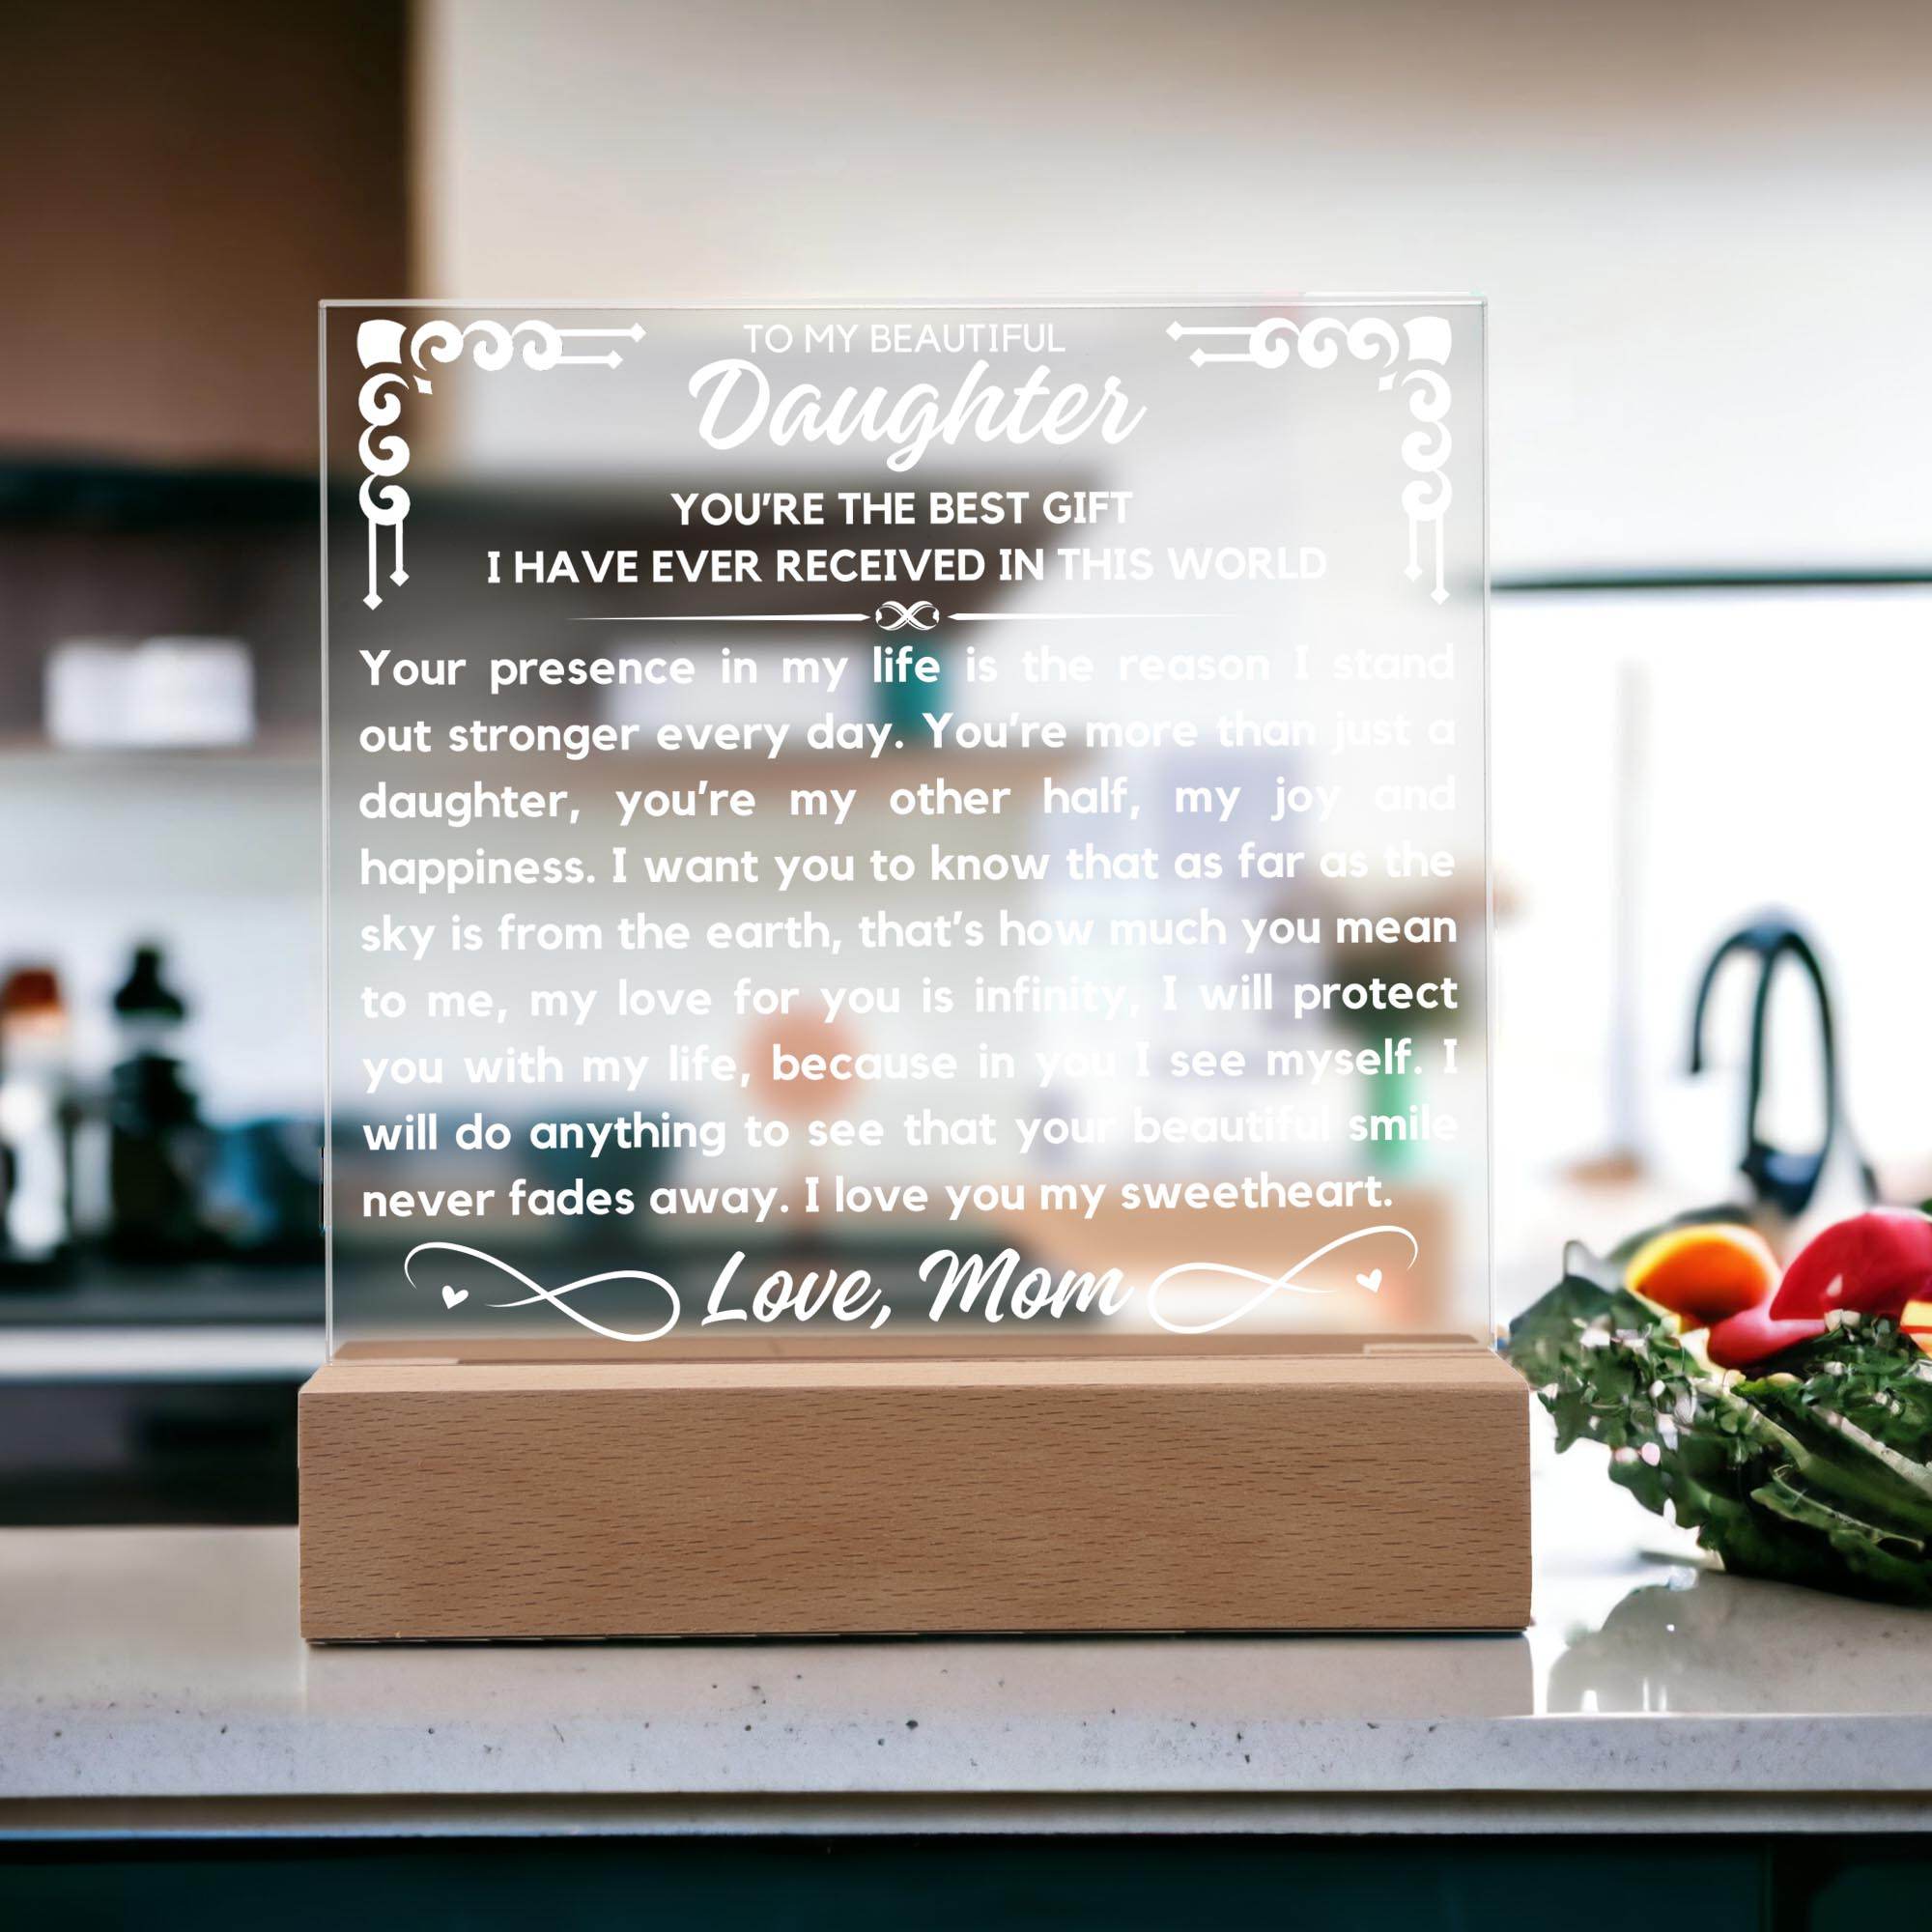 TO MY BEAUTIFUL
Daughter
YOU'RE THE BEST GIFT
I HAVE EVER RECEIVED IN THIS WORLD
Your presence in my life is the reason I stand
out stronger every day. You're more than just a
daughter, you're my other half, my joy and
happiness. I want you to know that as far as the
sky is from the earth, that's how much you mean
to me, my love for you is infinity, I will protect
you with my life, because in you I see myself. I
will do anything to see that your beautiful smile
never fades away. I love you my sweetheart.
Love, Mom